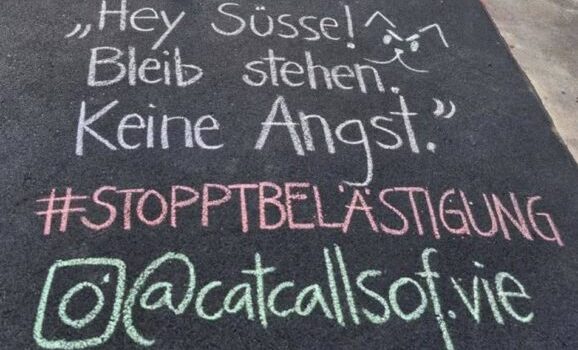 „Hey Süsse!
Bleib stehen.
Keine Angst.”
#STOPPTBELÄSTIGUNG
@catcallsof.vie